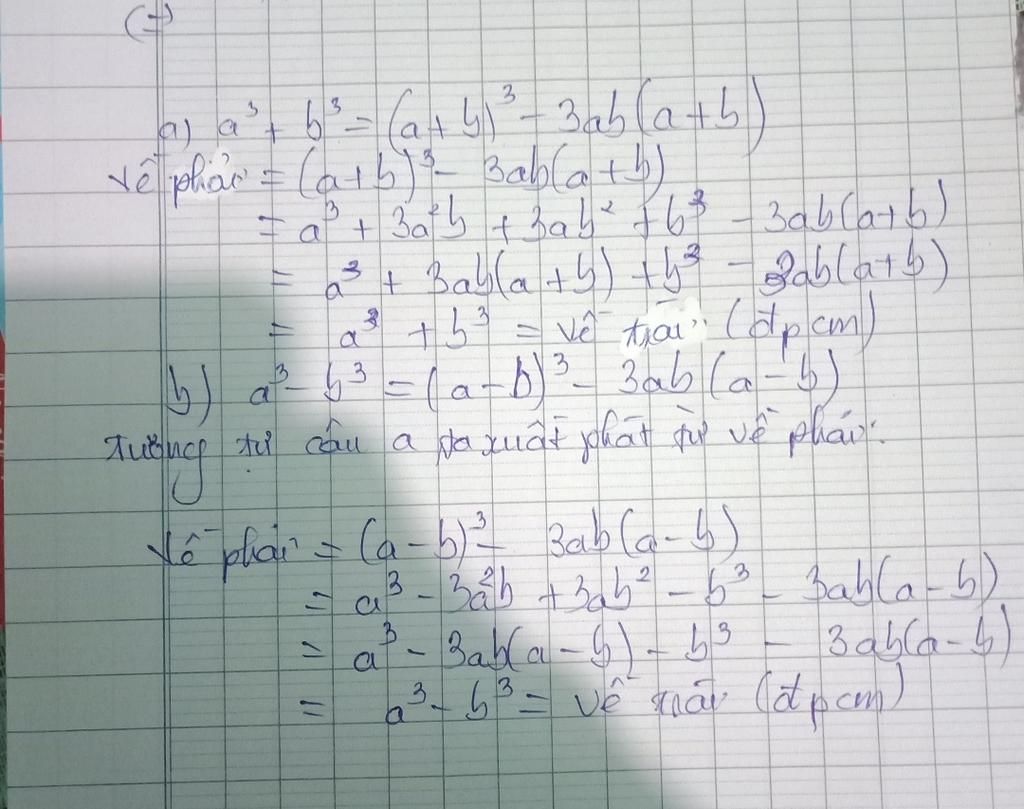 (+)
a) a³ + b³ = (a+b)³ - 3ab(a+b)
Vế phải = (a+b)³ - 3ab(a+b)
= a³ + 3a²b + 3ab² + b³ - 3ab(a+b)
= a³ + 3ab(a+b) + b³ - 3ab(a+b)
= a³ + b³ = vế trái (đpcm)
b) a³ - b³ = (a-b)³ - 3ab(a-b)
tương tự câu a ta xuất phát từ vế phải:
Vế phải = (a-b)³ - 3ab(a-b)
= a³ - 3a²b + 3ab² - b³ - 3ab(a-b)
= a³ - 3ab(a-b) - b³ - 3ab(a-b)
= a³ - b³ = vế trái (đpcm)